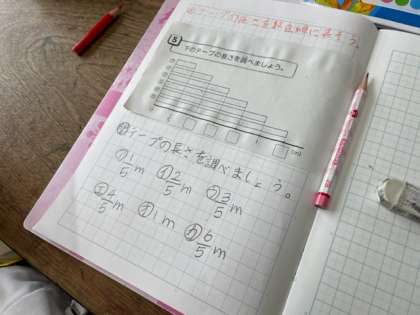 テープの長さを数直線に表そう。
5
下のテープの長さを調べましょう。
0 1 (m)
テープの長さを調べましょう。
㋐1/5m ㋑2/5m ㋒3/5m
㋓4/5m ㋔1m ㋕6/5m